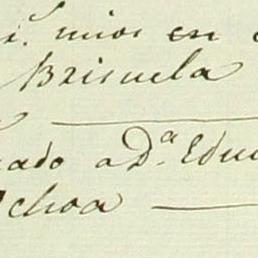 mios en
Brisuela
ado a D.ª Edu
choa